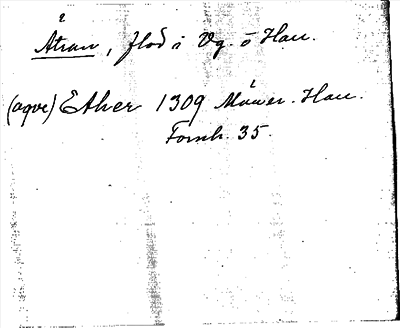 2
Ätran, flod i Vg. o Hall.
(aqve) Ether 1309 Möller. Hall.
Fornh. 35.